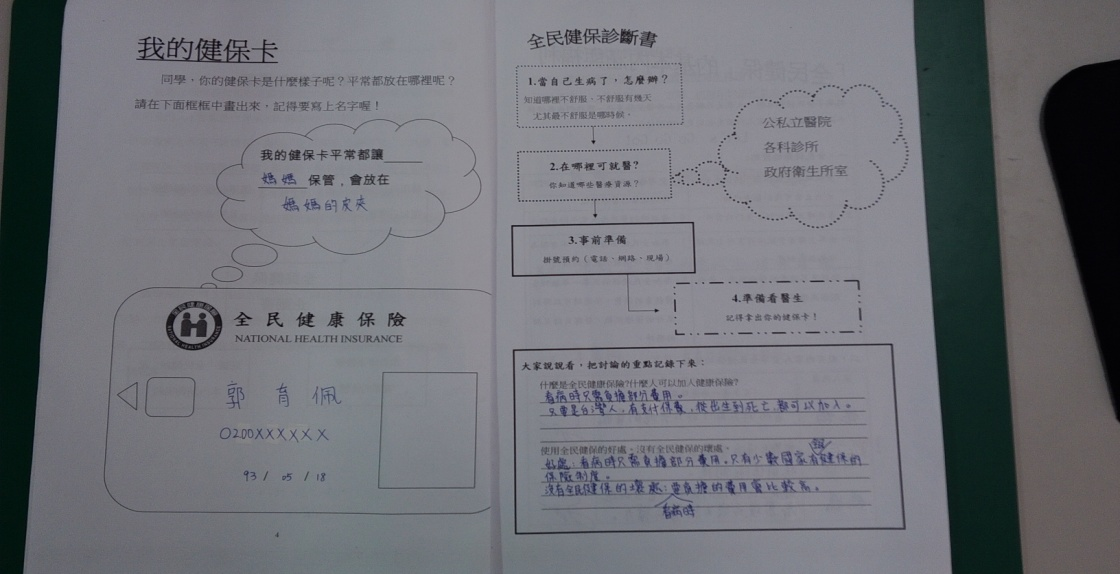 我的健保卡
同學，你的健保卡是什麼樣子呢？平常都放在哪裡呢？
請在下面框框中畫出來，記得要寫上名字喔！
我的健保卡平常都讓
媽媽 保管，會放在
媽媽的皮夾
全民健康保險
NATIONAL HEALTH INSURANCE
郭育佩
0200XXXXXX
93 / 05 / 18
4
全民健保診斷書
1.當自己生病了，怎麼辦？
知道哪裡不舒服、不舒服有幾天
尤其最不舒服是哪時候。
2.在哪裡可就醫？
你知道哪些醫療資源？
公私立醫院
各科診所
政府衛生所室
3.事前準備
掛號預約（電話、網路、現場）
4.準備看醫生
記得拿出你的健保卡！
大家說說看，把討論的重點記錄下來：
什麼是全民健康保險?什麼人可以加入健康保險?
看病時只需負擔部分費用。
只要是台灣人，有支付保費，從出生到死亡，都可以加入。
使用全民健保的好處、沒有全民健保的壞處。
好處：看病時只需負擔部分費用。只有少數國家有健保的
保險制度。
沒有全民健保的壞處：要負擔的費用會比較高。
看病時